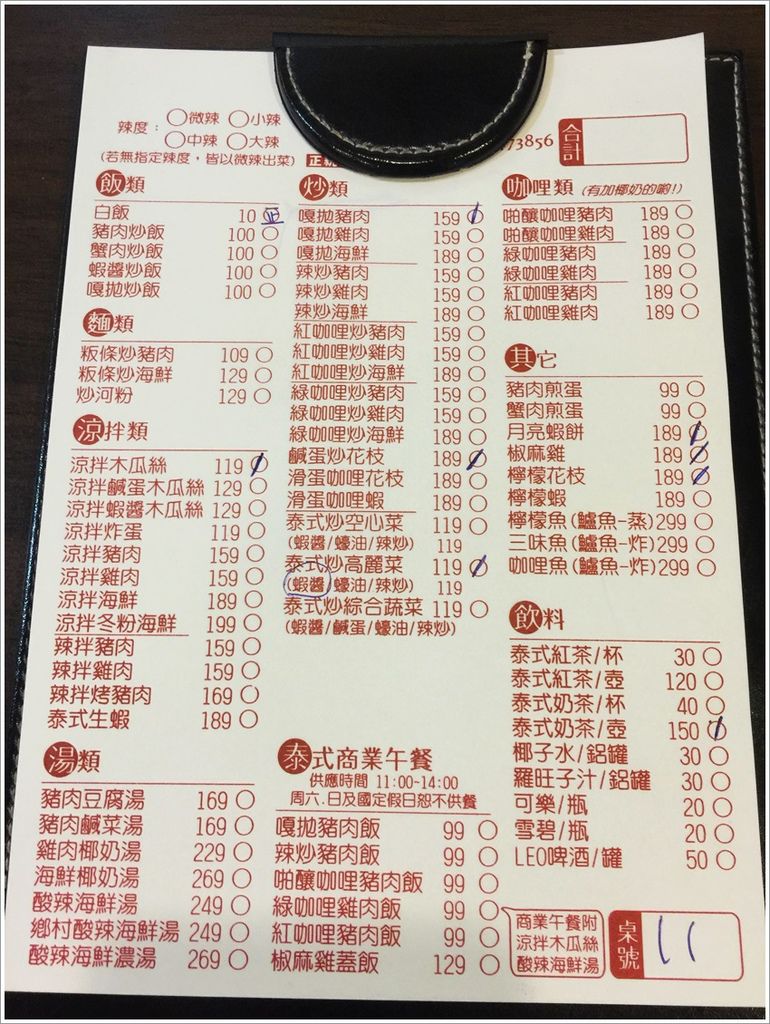 辣度：○微辣 ○小辣
○中辣 ○大辣
(若無指定辣度，皆以微辣出菜)
73856
合計
飯類
白飯 10 正
豬肉炒飯 100 ○
蟹肉炒飯 100 ○
蝦醬炒飯 100 ○
嘎拋炒飯 100 ○
麵類
粄條炒豬肉 109 ○
粄條炒海鮮 129 ○
炒河粉 129 ○
涼拌類
涼拌木瓜絲 119 ○
涼拌鹹蛋木瓜絲 129 ○
涼拌蝦醬木瓜絲 129 ○
涼拌炸蛋 119 ○
涼拌豬肉 159 ○
涼拌雞肉 159 ○
涼拌海鮮 189 ○
涼拌冬粉海鮮 199 ○
辣拌豬肉 159 ○
辣拌雞肉 159 ○
辣拌烤豬肉 169 ○
泰式生蝦 189 ○
湯類
豬肉豆腐湯 169 ○
豬肉鹹菜湯 169 ○
雞肉椰奶湯 229 ○
海鮮椰奶湯 269 ○
酸辣海鮮湯 249 ○
鄉村酸辣海鮮湯 249 ○
酸辣海鮮濃湯 269 ○
炒類
嘎拋豬肉 159 ○
嘎拋雞肉 159 ○
嘎拋海鮮 189 ○
辣炒豬肉 159 ○
辣炒雞肉 159 ○
辣炒海鮮 189 ○
紅咖哩炒豬肉 159 ○
紅咖哩炒雞肉 159 ○
紅咖哩炒海鮮 189 ○
綠咖哩炒豬肉 159 ○
綠咖哩炒雞肉 159 ○
綠咖哩炒海鮮 189 ○
鹹蛋炒花枝 189 ○
滑蛋咖哩花枝 189 ○
滑蛋咖哩蝦 189 ○
泰式炒空心菜 119 ○
(蝦醬/蠔油/辣炒) 119
泰式炒高麗菜 119 ○
(蝦醬/蠔油/辣炒) 119
泰式炒綜合蔬菜 119 ○
(蝦醬/鹹蛋/蠔油/辣炒)
泰式商業午餐
供應時間 11:00~14:00
周六.日及國定假日恕不供餐
嘎拋豬肉飯 99 ○
辣炒豬肉飯 99 ○
啪釀咖哩豬肉飯 99 ○
綠咖哩雞肉飯 99 ○
紅咖哩豬肉飯 99 ○
椒麻雞蓋飯 129 ○
咖哩類 (有加椰奶的喲!)
啪釀咖哩豬肉 189 ○
啪釀咖哩雞肉 189 ○
綠咖哩豬肉 189 ○
綠咖哩雞肉 189 ○
紅咖哩豬肉 189 ○
紅咖哩雞肉 189 ○
其它
豬肉煎蛋 99 ○
蟹肉煎蛋 99 ○
月亮蝦餅 189 ○
椒麻雞 189 ○
檸檬花枝 189 ○
檸檬蝦 189 ○
檸檬魚(鱸魚-蒸)299 ○
三味魚(鱸魚-炸)299 ○
咖哩魚(鱸魚-炸)299 ○
飲料
泰式紅茶/杯 30 ○
泰式紅茶/壺 120 ○
泰式奶茶/杯 40 ○
泰式奶茶/壺 150 ○
椰子水/鋁罐 30 ○
羅旺子汁/鋁罐 30 ○
可樂/瓶 20 ○
雪碧/瓶 20 ○
LEO啤酒/罐 50 ○
商業午餐附
涼拌木瓜絲
酸辣海鮮湯
桌號 11